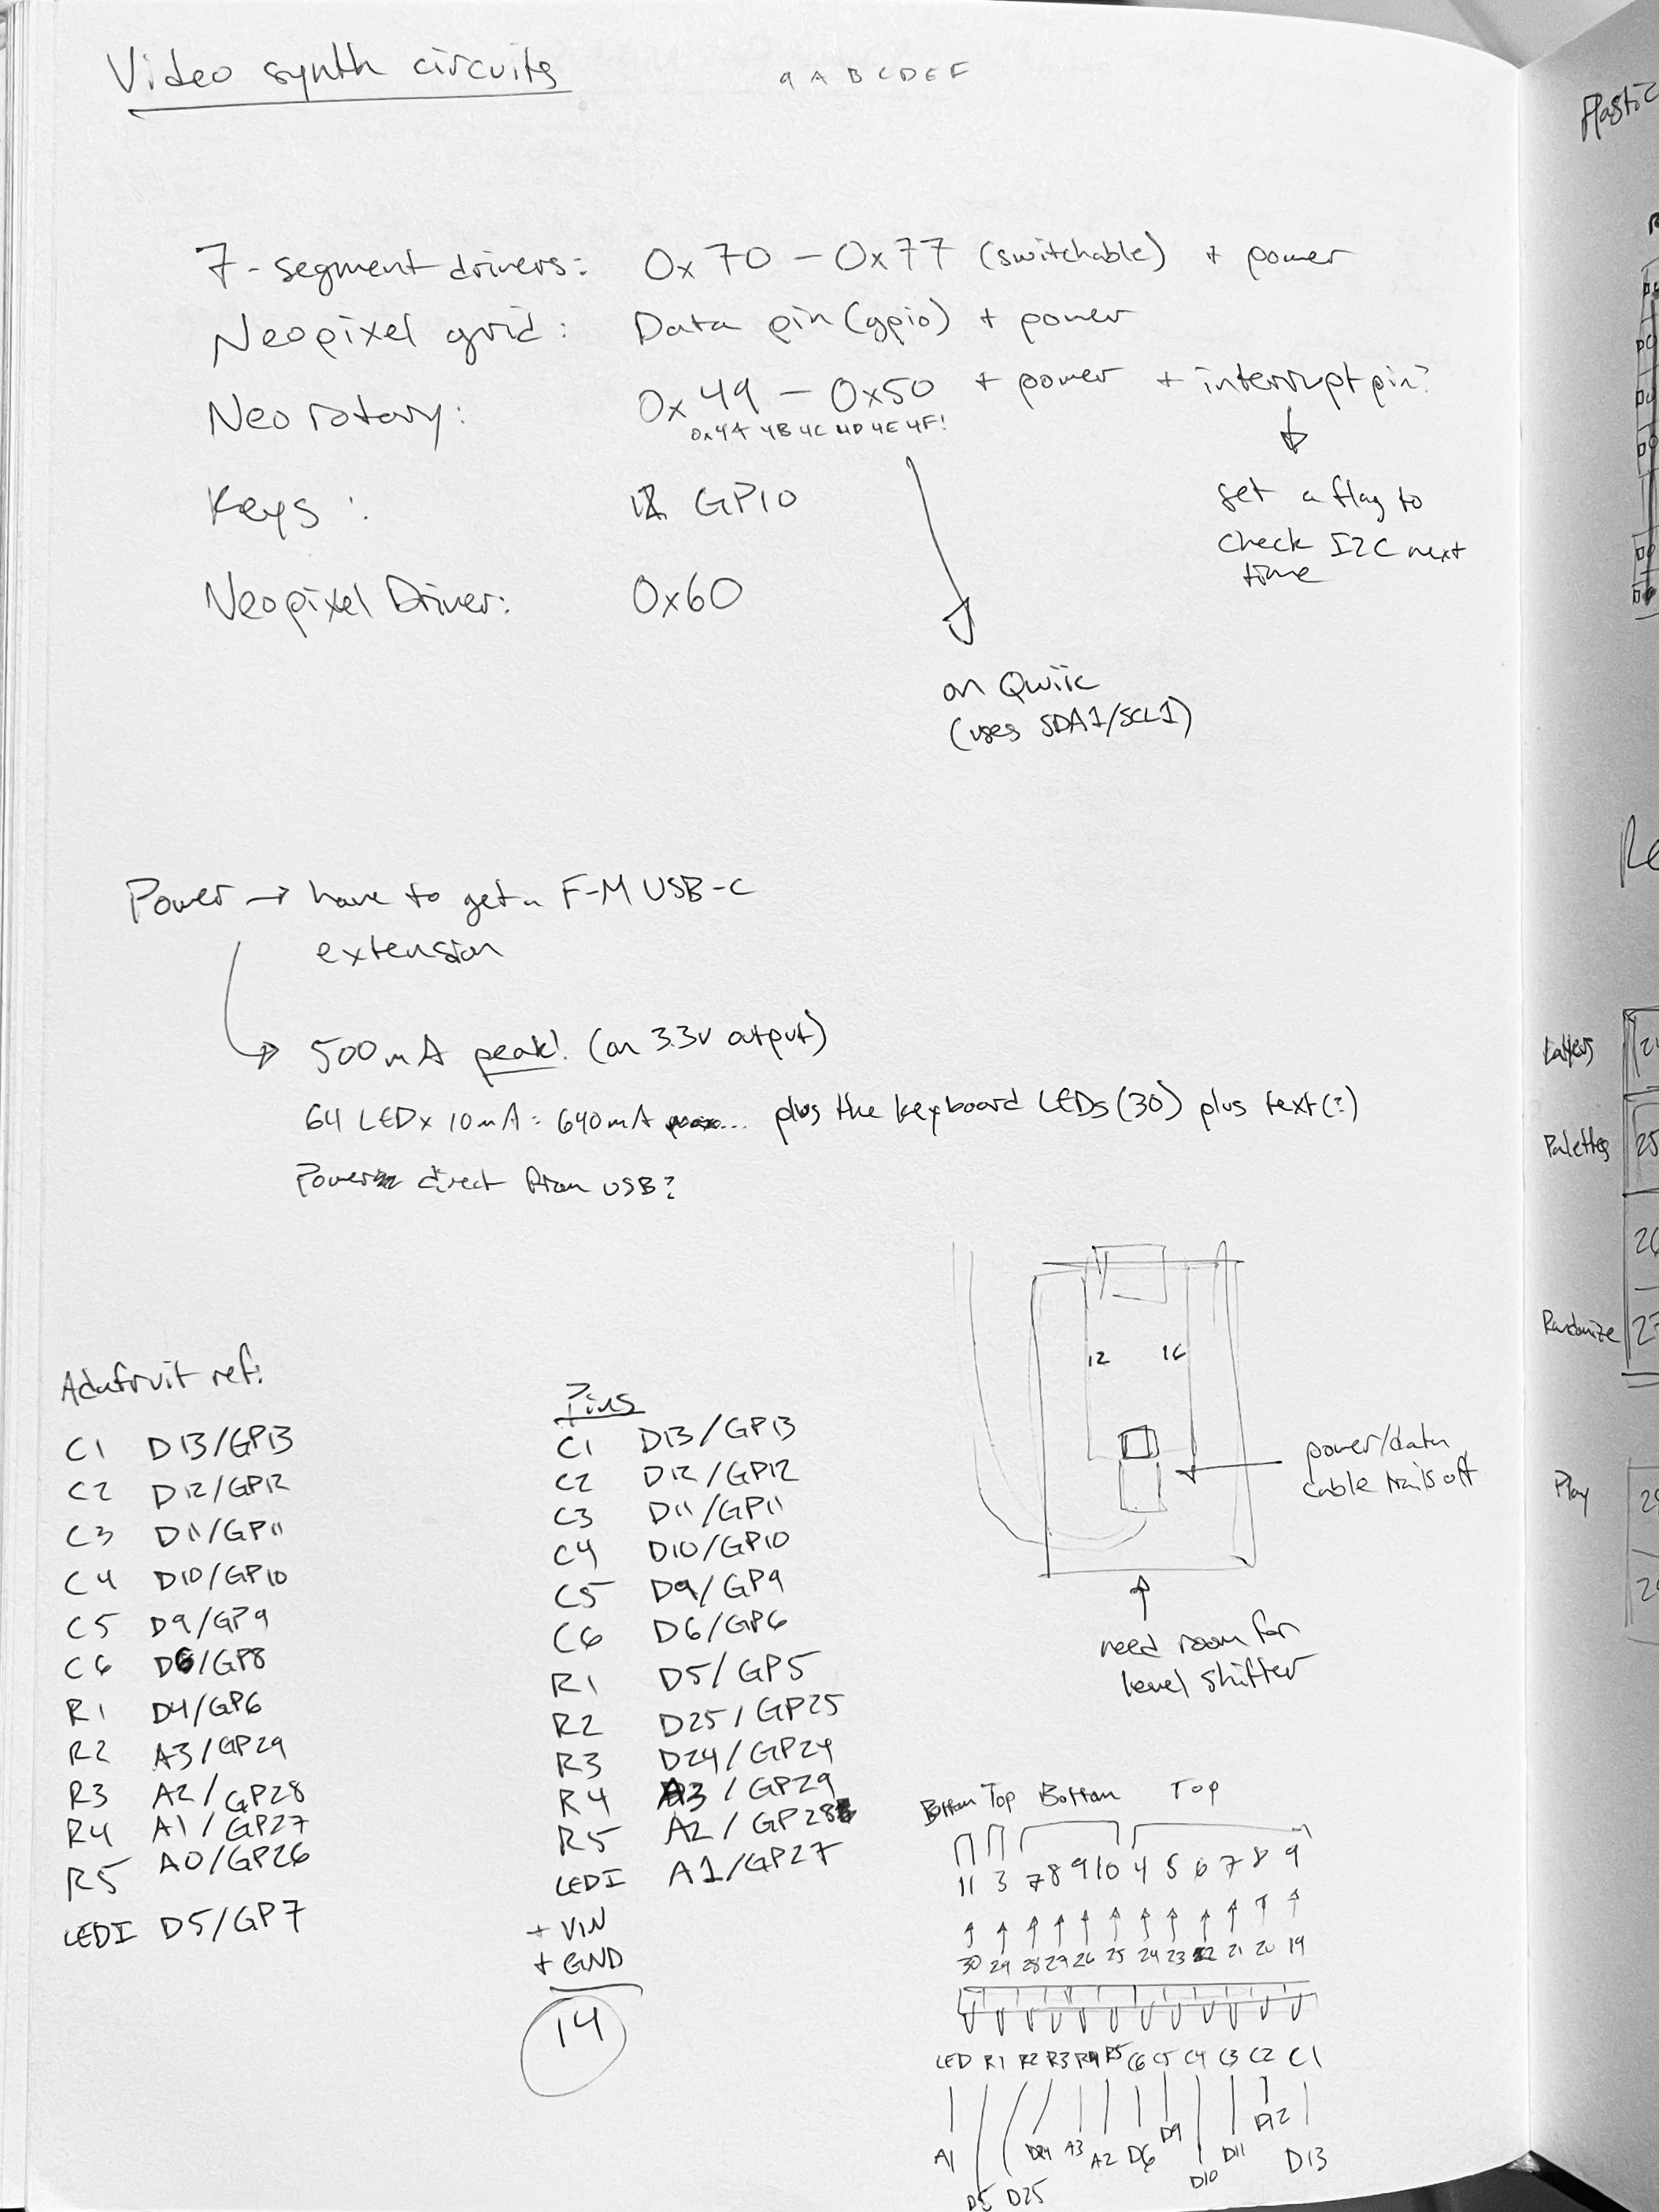 Video synth circuits
9 A B C D E F
7-segment drivers: 0x70 – 0x77 (switchable) + power
Neopixel grid: Data pin (gpio) + power
Neo rotary: 0x49 – 0x50 + power + interrupt pin?
0x4A 4B 4C 4D 4E 4F!
set a flag to
check I2C next
time
Keys: 12 GPIO
Neopixel Driver: 0x60
on Qwiic
(uses SDA1/SCL1)
Power → have to get a F-M USB-C
extension
500mA peak! (on 3.3v output)
64 LED x 10mA = 640mA ... plus the keyboard LEDs (30) plus text(?)
Power direct from USB?
12 16
power/data
cable trails off
need room for
level shifter
Adafruit ref:
C1 D13/GP13
C2 D12/GP12
C3 D11/GP11
C4 D10/GP10
C5 D9/GP9
C6 D6/GP8
R1 D4/GP6
R2 A3/GP29
R3 A2/GP28
R4 A1/GP27
R5 A0/GP26
LEDI D5/GP7
Pins
C1 D13/GP13
C2 D12/GP12
C3 D11/GP11
C4 D10/GP10
C5 D9/GP9
C6 D6/GP6
R1 D5/GP5
R2 D25/GP25
R3 D24/GP24
R4 A3/GP29
R5 A2/GP28
LEDI A1/GP27
+ VIN
+ GND
14
Bottom Top Bottom Top
11 3 7 8 9 10 4 5 6 7 8 9
30 29 28 27 26 25 24 23 22 21 20 19
LED R1 R2 R3 R4 R5 C6 C5 C4 C3 C2 C1
A1 D5 D25 D24 A3 A2 D6 D9 D10 D11 D12 D13
Plastic
Re
Layers
Palettes 25
26
Randomize 27
Play